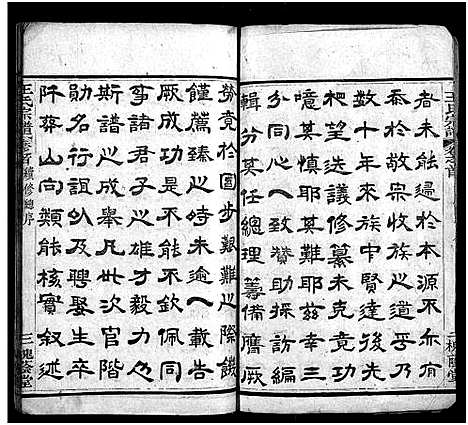 王氏宗譜 卷之首
者未能敦於本源不亦有
忝於敬宗收族之道乎乃
數十年來族中賢達屢以
杞望迭議修纂未克竟功
噫其慎耶其難耶茲幸三
分同心一致贊助採訪編
輯分其任總理籌備膺厥
二 槐蔭堂
勞竟於國步艱難之際饑
饉薦臻之時未逾一載告
厥成功能不欽佩同
事諸君子之雄才毅力乎
斯譜之成舉凡世次官階
勛名行誼以及聘娶生卒
阡葬山向類能核實叙述
王氏宗譜 卷首 續修總序
三 槐蔭堂